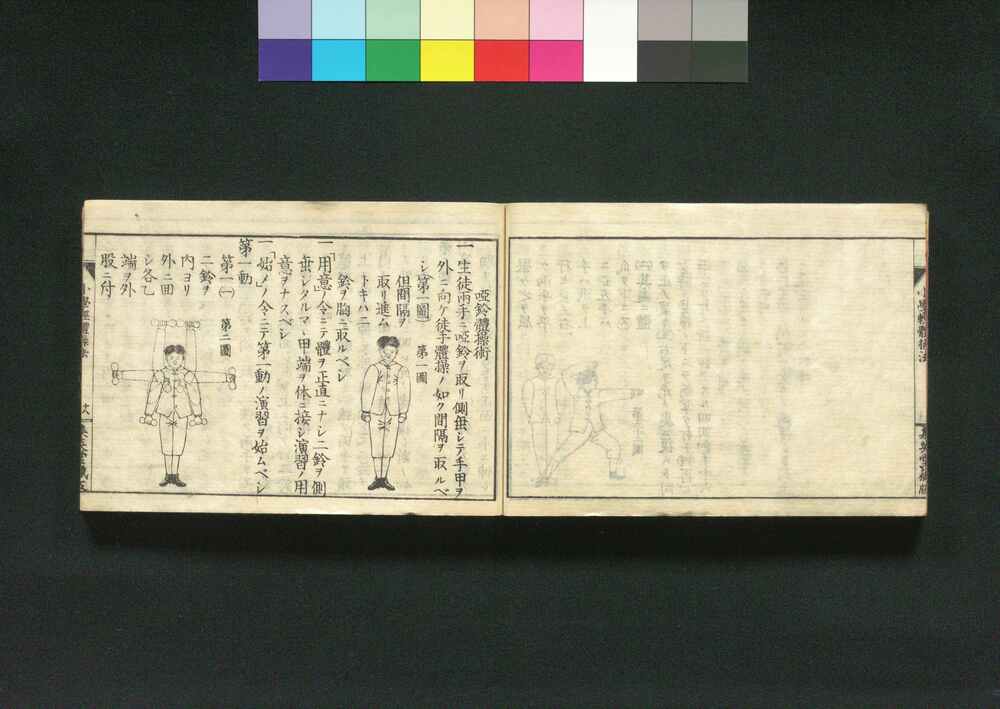 小學輕體操法
啞鈴體操術
一 生徒両手ニ啞鈴ヲ取リ側垂シテ手甲ヲ
外ニ向ケ徒手體操ノ如ク間隔ヲ取ルベ
シ(第一圖)
第一圖
但間隔ヲ
取リ進ム
トキハ二
鈴ヲ胸ニ取ルベシ
一「用意」ノ令ニテ體ヲ正直ニナシ二鈴ヲ側
垂シタルマヽ甲端ヲ体ニ接シ演習ノ用
意ヲナスベシ
一「始メ」ノ令ニテ第一動ノ演習ヲ始ムベシ
第一動
第一(一)
第二圖
二鈴ヲ
内ヨリ
外ニ回
シ各乙
端ヲ外
股ニ付
小學輕體操法